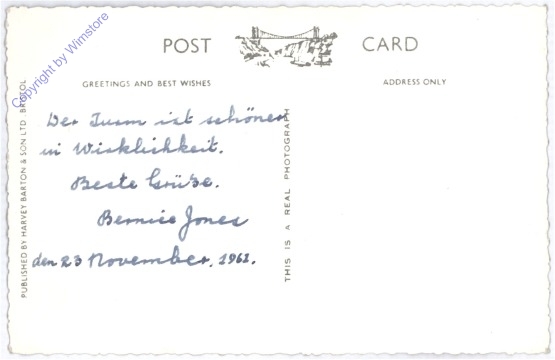 POST CARD
GREETINGS AND BEST WISHES
ADDRESS ONLY
Der Turm ist schöner
in Wirklichkeit.
Beste Grüße.
Bernice Jones
den 23 November, 1961.
PUBLISHED BY HARVEY BARTON & SON LTD. BRISTOL
THIS IS A REAL PHOTOGRAPH
Copyright by Wimstore